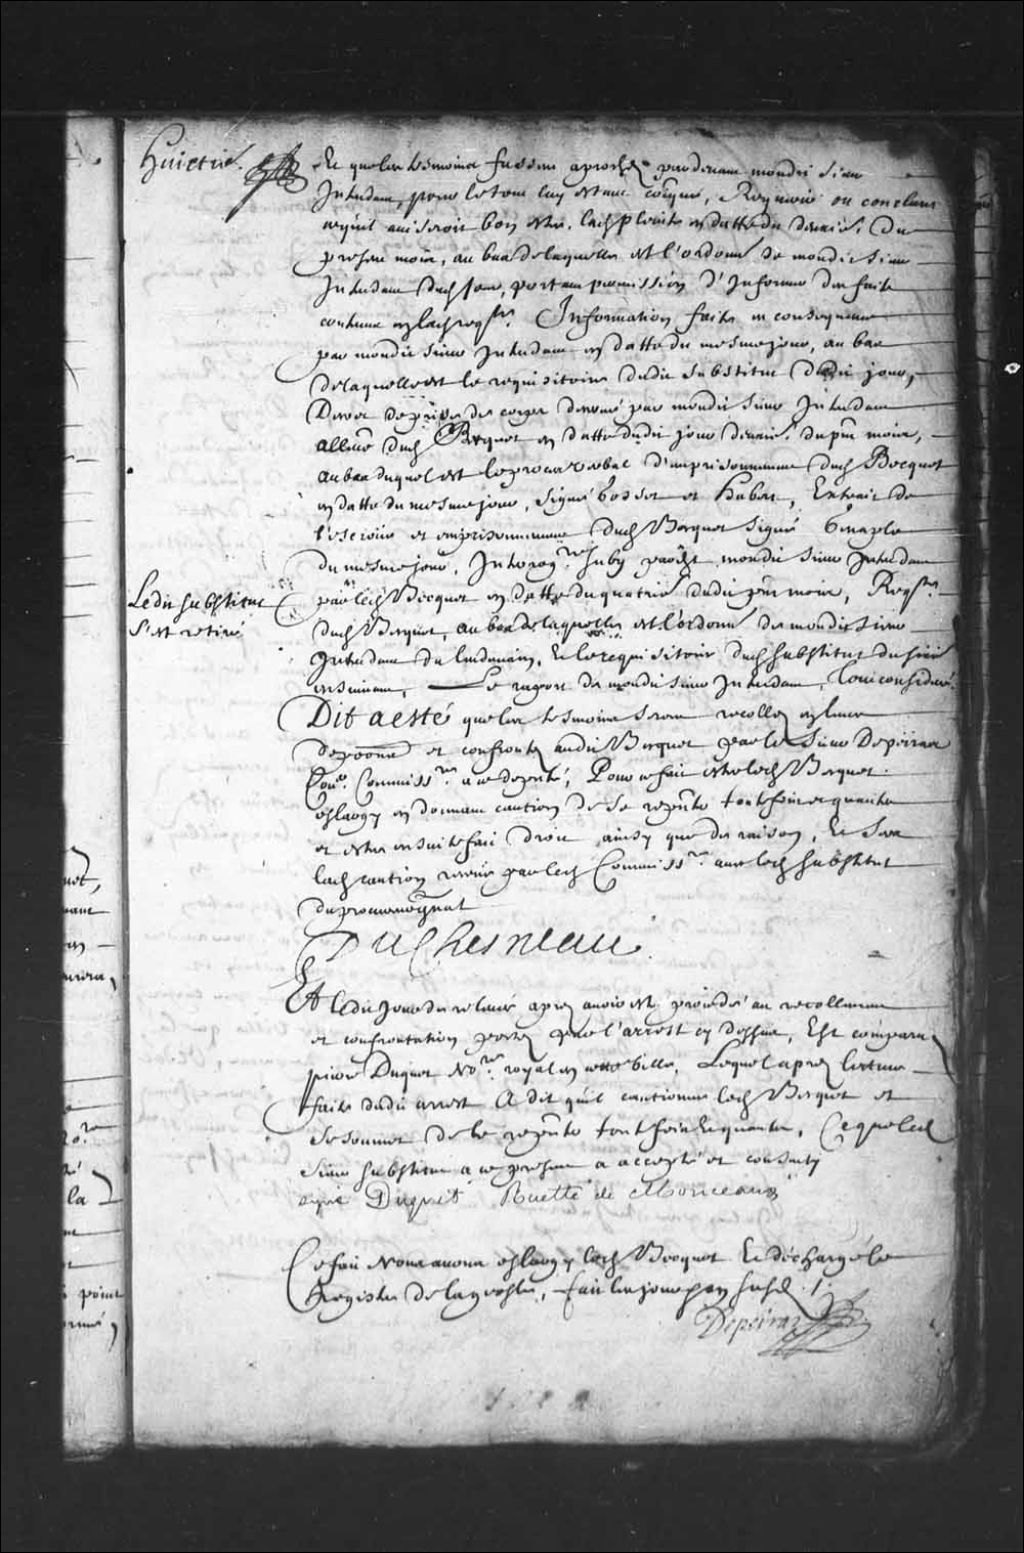 huictie.
Et que les tesmoins fussent aprochés pardevant mondit sieur
Intendant, pour le tout luy estant coĩqué, Requerir ou conclure
cequil aviseroit bon estre, lad plainte en datte du deuxie. du
present mois, au bas de laquelle est l'ordonnᵉ de mondit sieur
Intendant dud jour, portant permission d'Informer des faits
contenus en lad reqᵗᵉ. Information faite en consequence
par mondit sieur Intendant en datte du mesme jour, au bas
de laquelle est le requisitoire dudit substitut dudit jour,
Decret de prise de corps decerné par mondit sieur Intendant
allenᵉ dud Becquet en datte dudit jour deuxie. du pnt mois,
au bas duquel est le procez verbal d'emprisonnement dud Becquet
en datte du mesme jour, signé Gosset et Hubert, Extrait de
l'escroüe et emprisonnement dud Becquet signé Genaple
du mesme jour. Interogʳᵉ suby pardᵗ mondit sieur Intendant
par led Becquet en datte du quatrie dudit pnt mois, Reqᵗᵉ
dud Becquet, au bas de laquelle est l'ordonnᵉ de mondit sieur
Intendant du lendemain, et le requisitoire dud substitut du sixie
ensuivant, Le raport de mondit sieur Intendant, Tout consideré.
Ledit substitut
s'est retiré
Dit a esté que les tesmoins seront recollez en leurs
depoõns et confrontez audit Becquet par le sieur Depeiras
Conᵉʳ. Commissʳᵉ a ce deputé, Pour ce fait estre led Becquet
eslargy en donnant caution de se repñter toutefois et quantes
et estre ensuite fait droit ainsy que de raison, Et sera
lad caution receüe par led Commissʳᵉ avec led substitut
du procureur gñal
Duchesneau
Et ledit jour de relevée apres avoir esté procedé au recollement
et confrontation portez par l'arrest cy dessus, Est comparu
pierre Duquet Noʳᵉ. royal en cette ville, Lequel apres lecture
faite dudit arrest A dit qu'il cautionne led Becquet et
se soumet de le repñter toutefois et quantes, Ce que led
sieur substitut a ce present a accepté et consenty
signé Duquet Ruette de Monceaux
Ce fait Nous avons eslargy led Becquet et déchargé le
Registre de la geolle, fait les jour et an susd. /
Depeiras